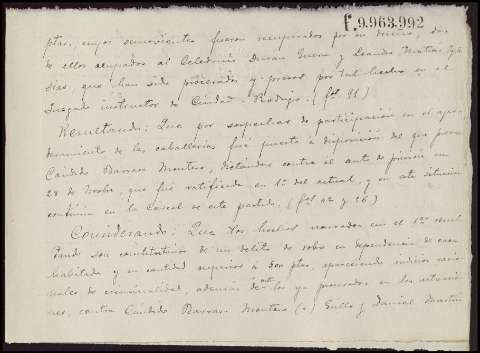 f.9.963.992
ptas, cuyos semovientes fueron recuperados por su dueño, dos
de ellos ocupados al Celedonio Duran y Leandro Matias
que han sido procesados y presos por tal hecho en el
Juzgado instructor de Ciudad-Rodrigo. (fol 91).
Resultando: Que por sospechas de participación en el apo-
deramiento de las caballerías fué puesto a disposición del que provee
Cándido Barroso Montero, dictándose contra el auto de prisión en
28 de Novbre, que fué ratificado en 1º del actual, y en esta situación
continua en la Carcel de este partido. (fols 42 y 26)
Considerando: Que los hechos narrados en el 1er resul
tando son constitutivos de un delito de robo en dependencia de casa
habitada y en cantidad superior a 500 ptas, apareciendo indicios racio-
nales de criminalidad, además de los ya procesados en las actuacio
nes, contra Cándido Barroso Montero (a) Grillo y Daniel Martin